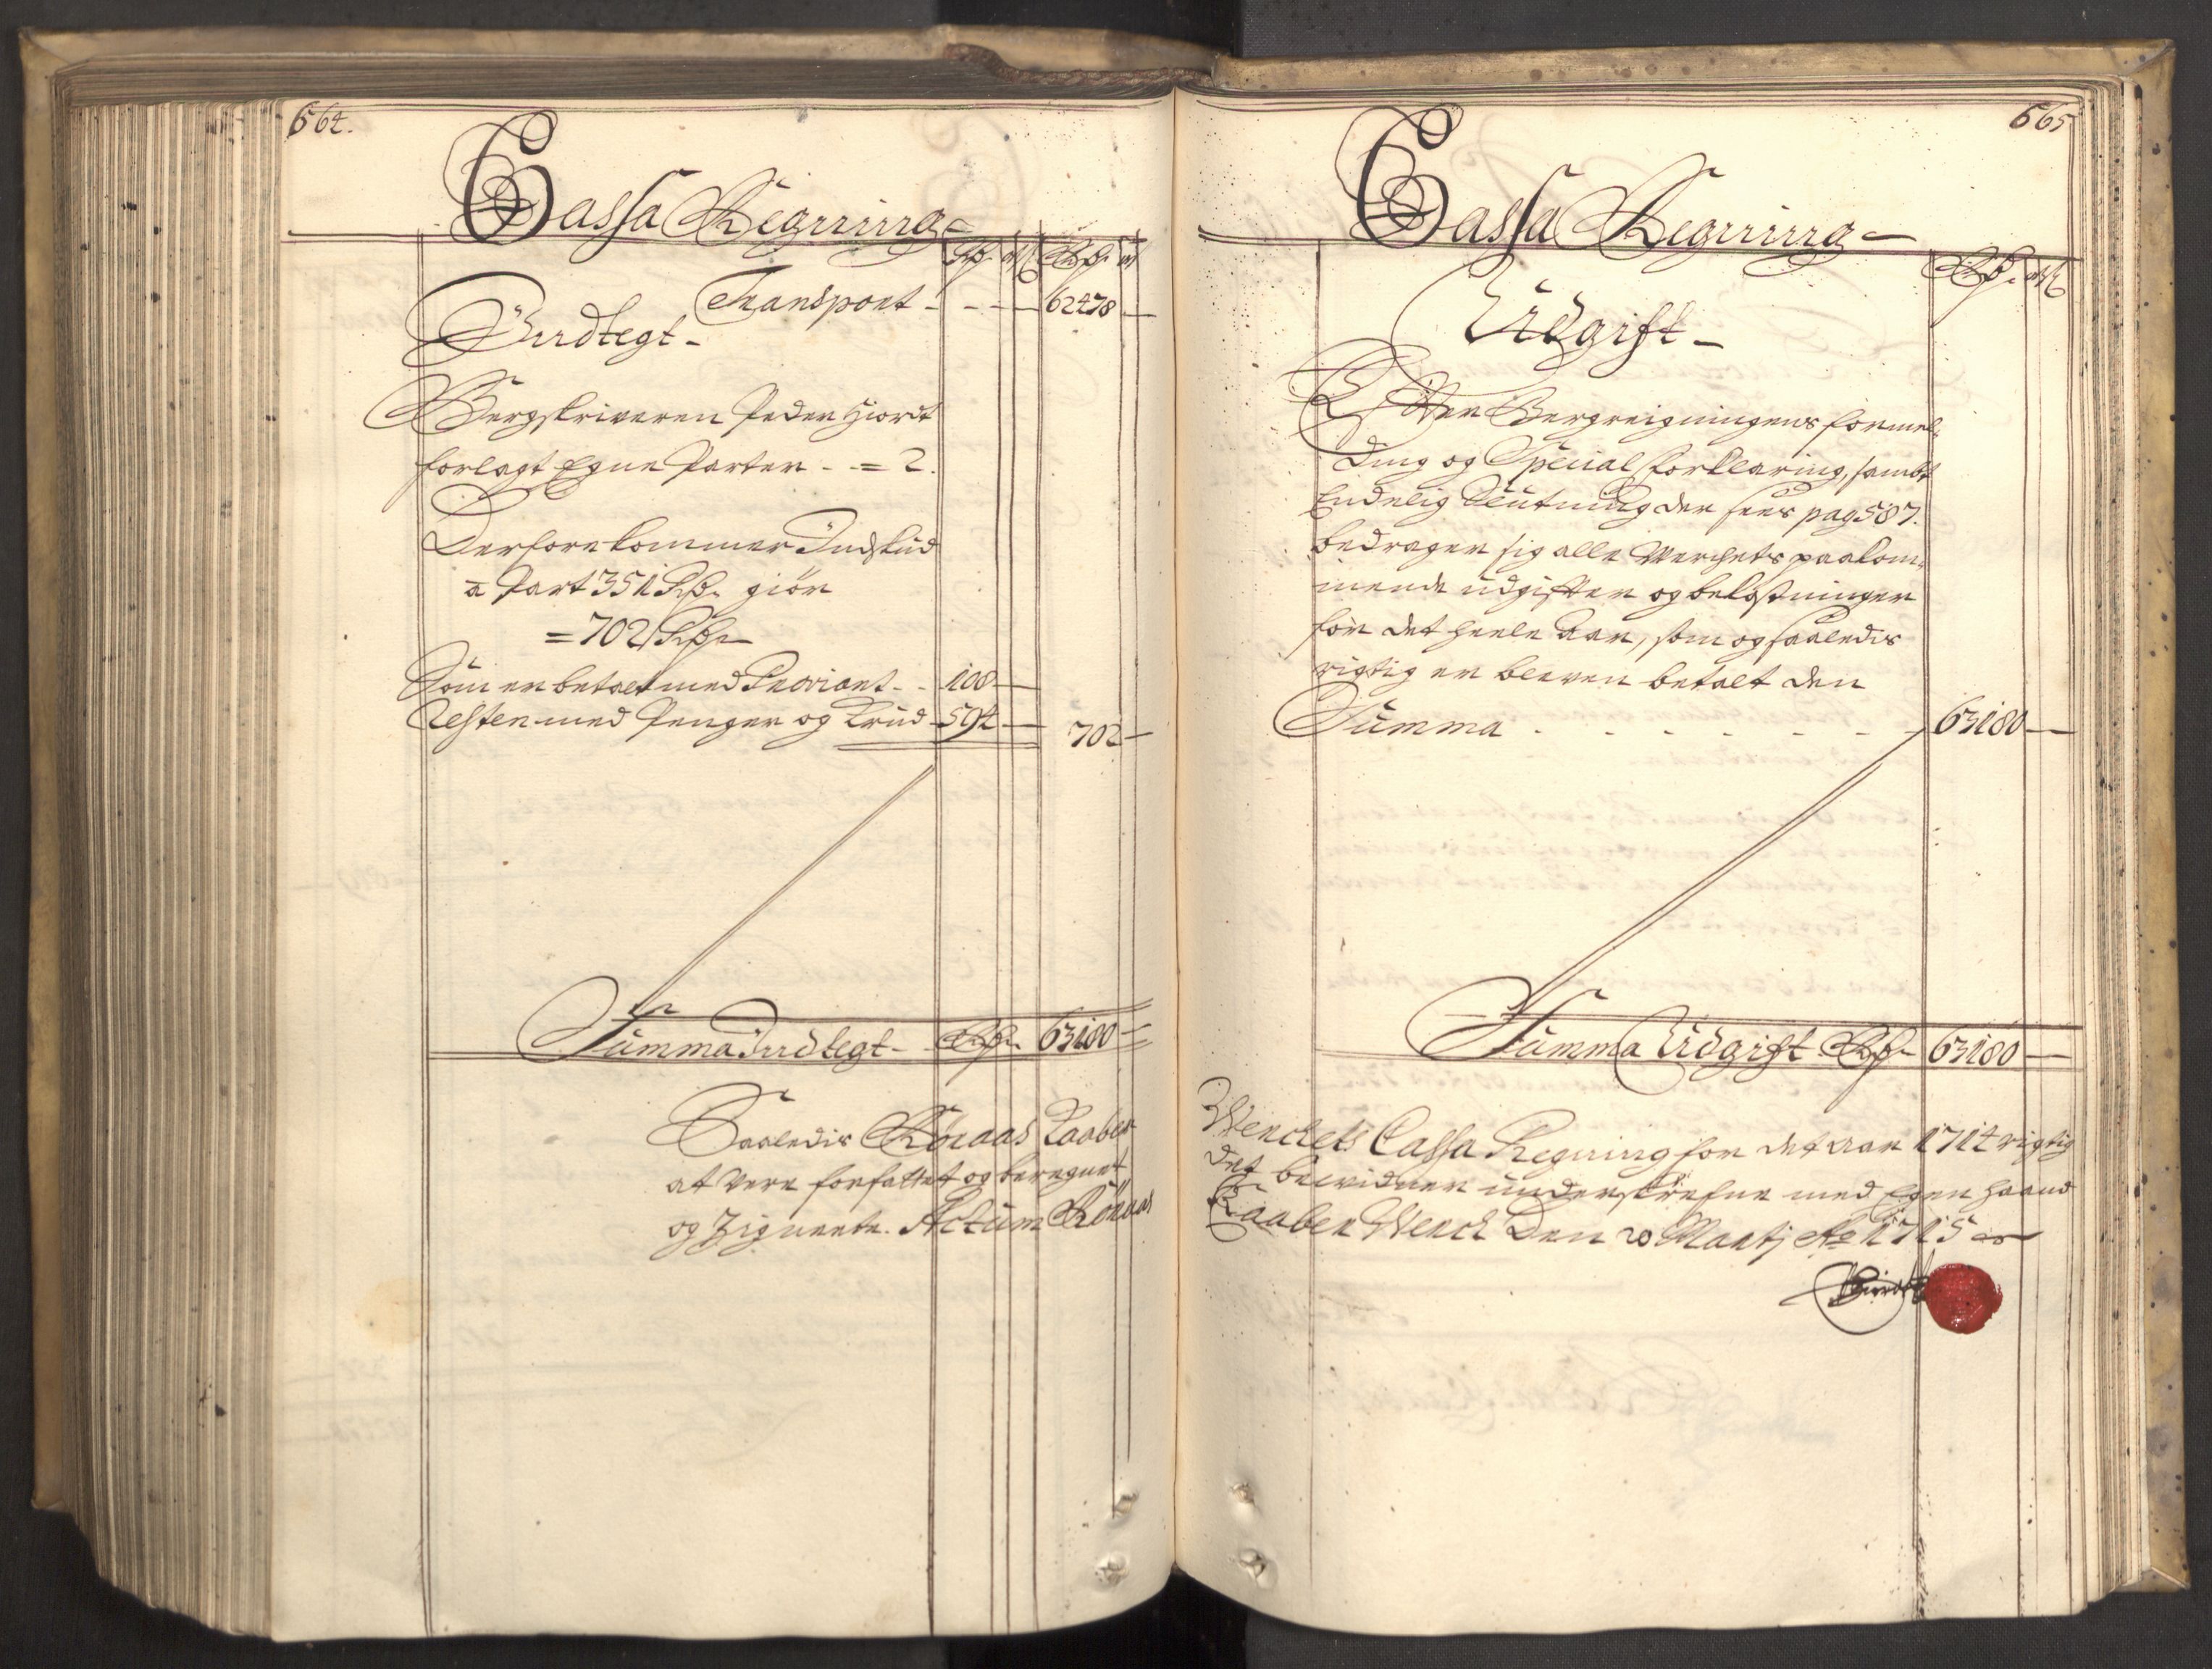 664.
Cassa Regning
Rdr. mk Rdr. mk
Transport - - - 62478 —
Indtegt -
Bergskriveren Peder Hiort
forlagt Egne Parter - = 2.
Derfore kommer Indskud
a Part 351 Rdr. giör
= 702 Rdr.
Som er betalt med Proviant - - 108 —
Resten med Penger og Krud - 594 — 702 —
Summa Indtegt - Rdr. 63180 —
Saaledis Röraas Kaaber
at være forfattet og beregnet
og Zignerte. Actum Röraas
665
Cassa Regning
Rdr. mk
Udgift -
Efter Bergreigningens formel,
ding og Special forklaring, sambt
Endelig Slutning der sees pag 587.
bedrager sig alle Werchets paakom,
mende udgifter og bekostninger
for det heele Aar, som og saaledis
rigtig er bleven betalt den
Summa - - - - - - 63180 —
Summa Udgift Rdr 63180 —
Werckets Cassa Regning for det Aar 1714 rigtig
det bevidner underskrefne med Egen haand
Kaaber Werck Den 20 Martj Ao 1715
PHiordt